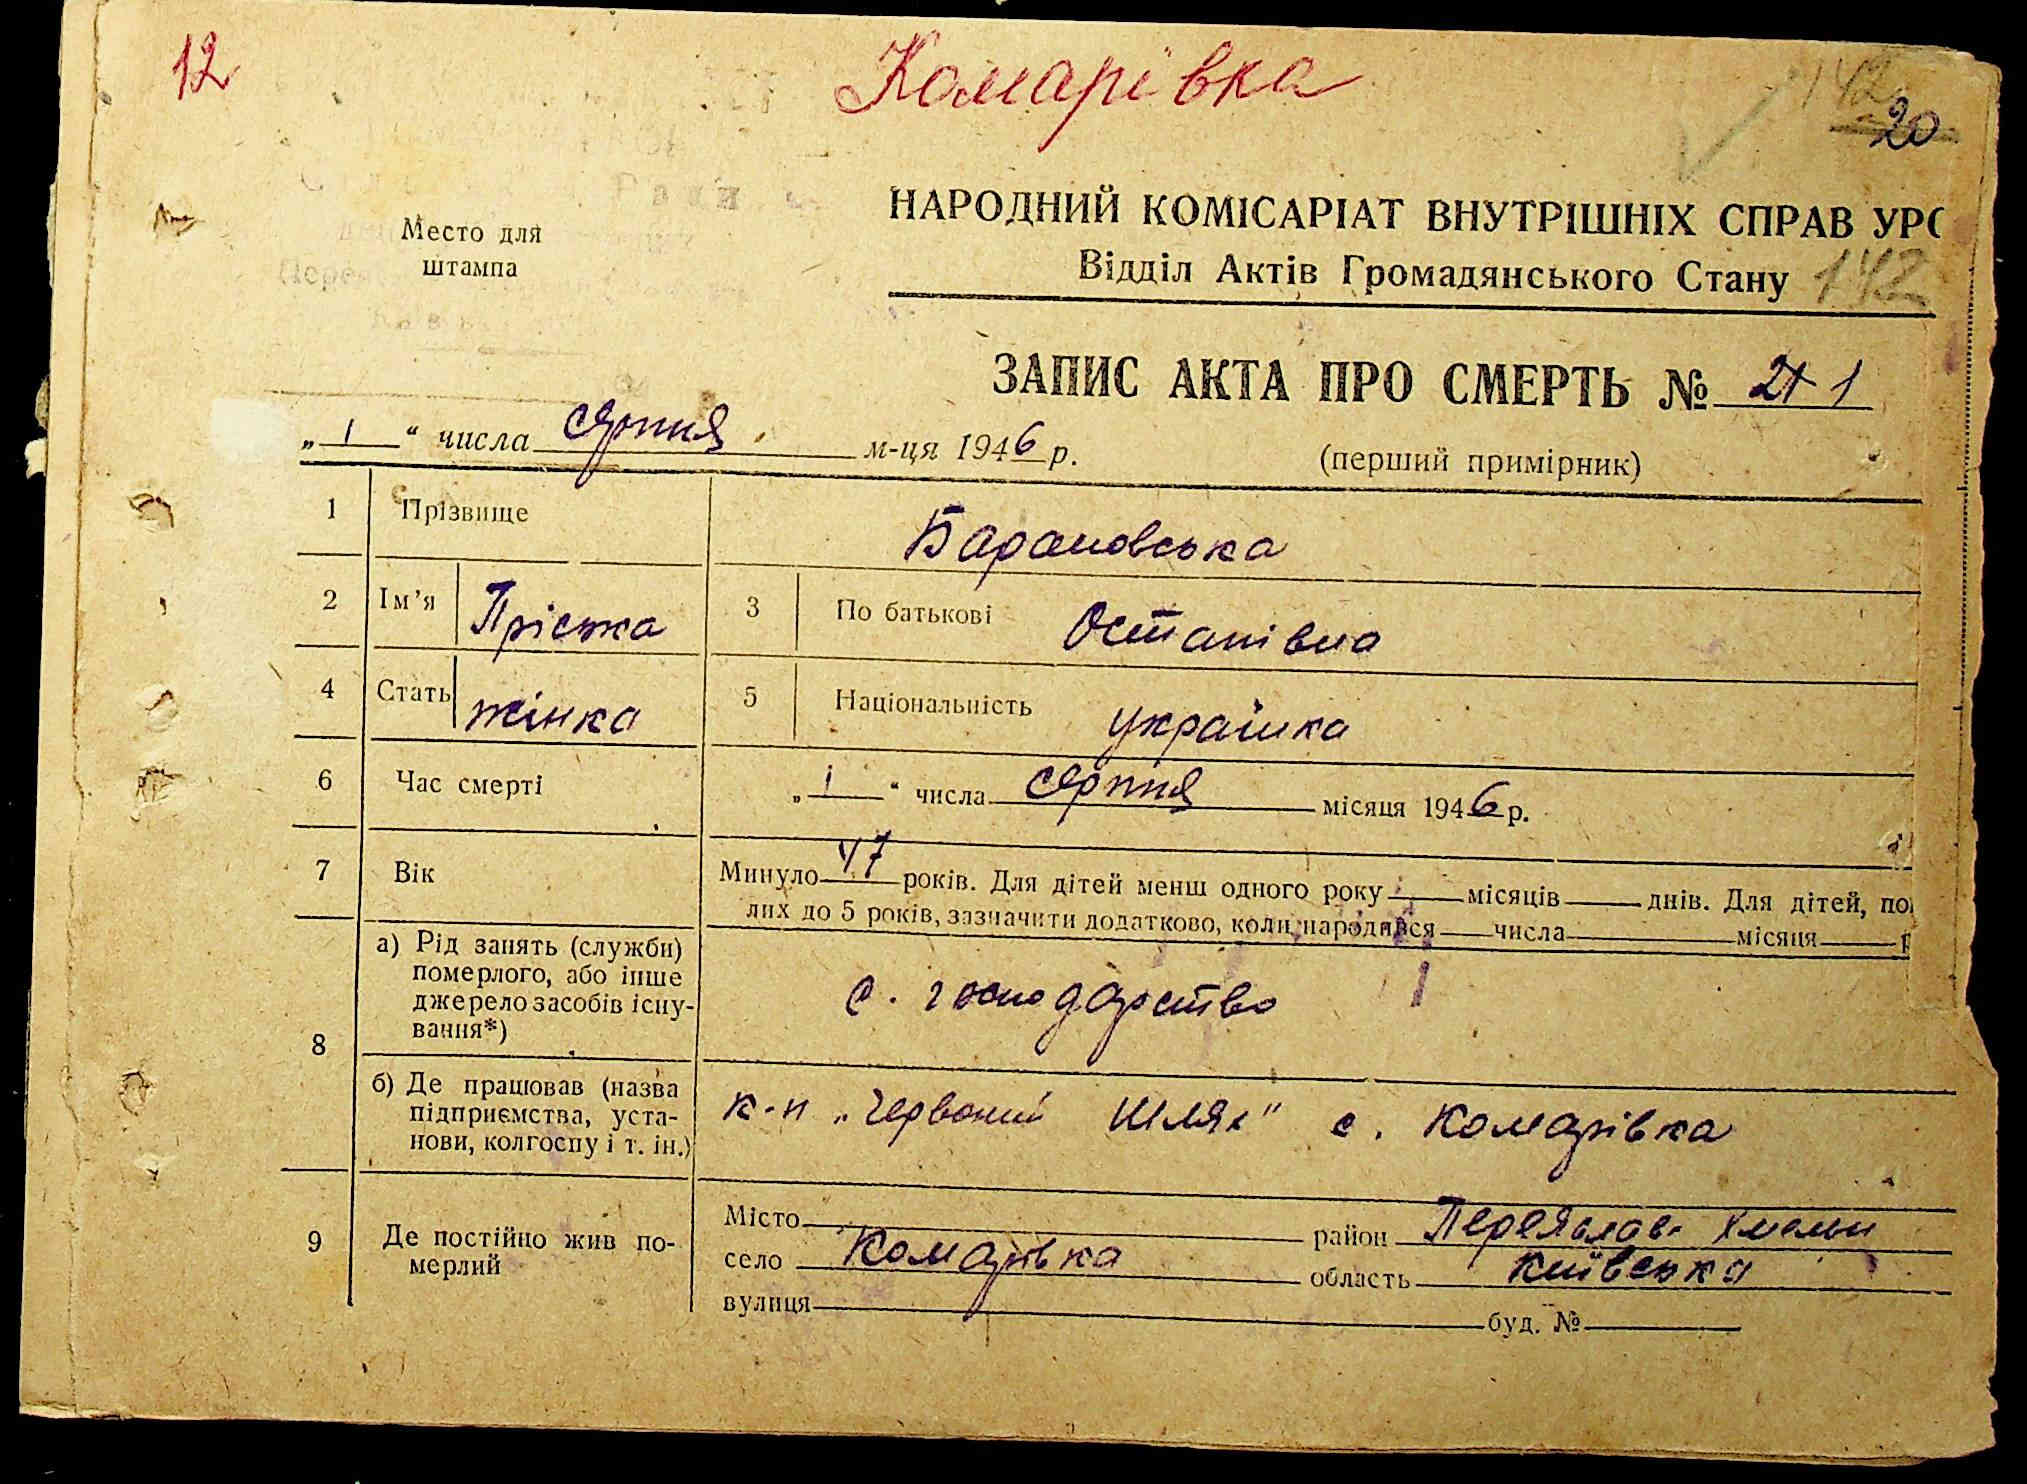 12
Комарівка
142
20
Место для
штампа
НАРОДНИЙ КОМІСАРІАТ ВНУТРІШНІХ СПРАВ УРС
Відділ Актів Громадянського Стану 142
ЗАПИС АКТА ПРО СМЕРТЬ № 1
„ 1 “ числа серпня м-ця 1946 р.
(перший примірник)
1 Прізвище Барановська
2 Ім’я Пріська 3 По батькові Остапівна
4 Стать жінка 5 Національність українка
6 Час смерті „ 1 “ числа серпня місяця 1946 р.
7 Вік Минуло 47 років. Для дітей менш одного року місяців днів. Для дітей, по
лих до 5 років, зазначити додатково, коли народився числа місяця р
8 а) Рід занять (служби)
померлого, або інше
джерело засобів існу-
вання*)
с. господарство
б) Де працював (назва
підприємства, уста-
нови, колгоспу і т. ін.)
к-п „Червоний Шлях" с. Комарівка
9 Де постійно жив по-
мерлий
Місто район Переяслав- Хмельн
село Комарівка область Київська
вулиця буд. №